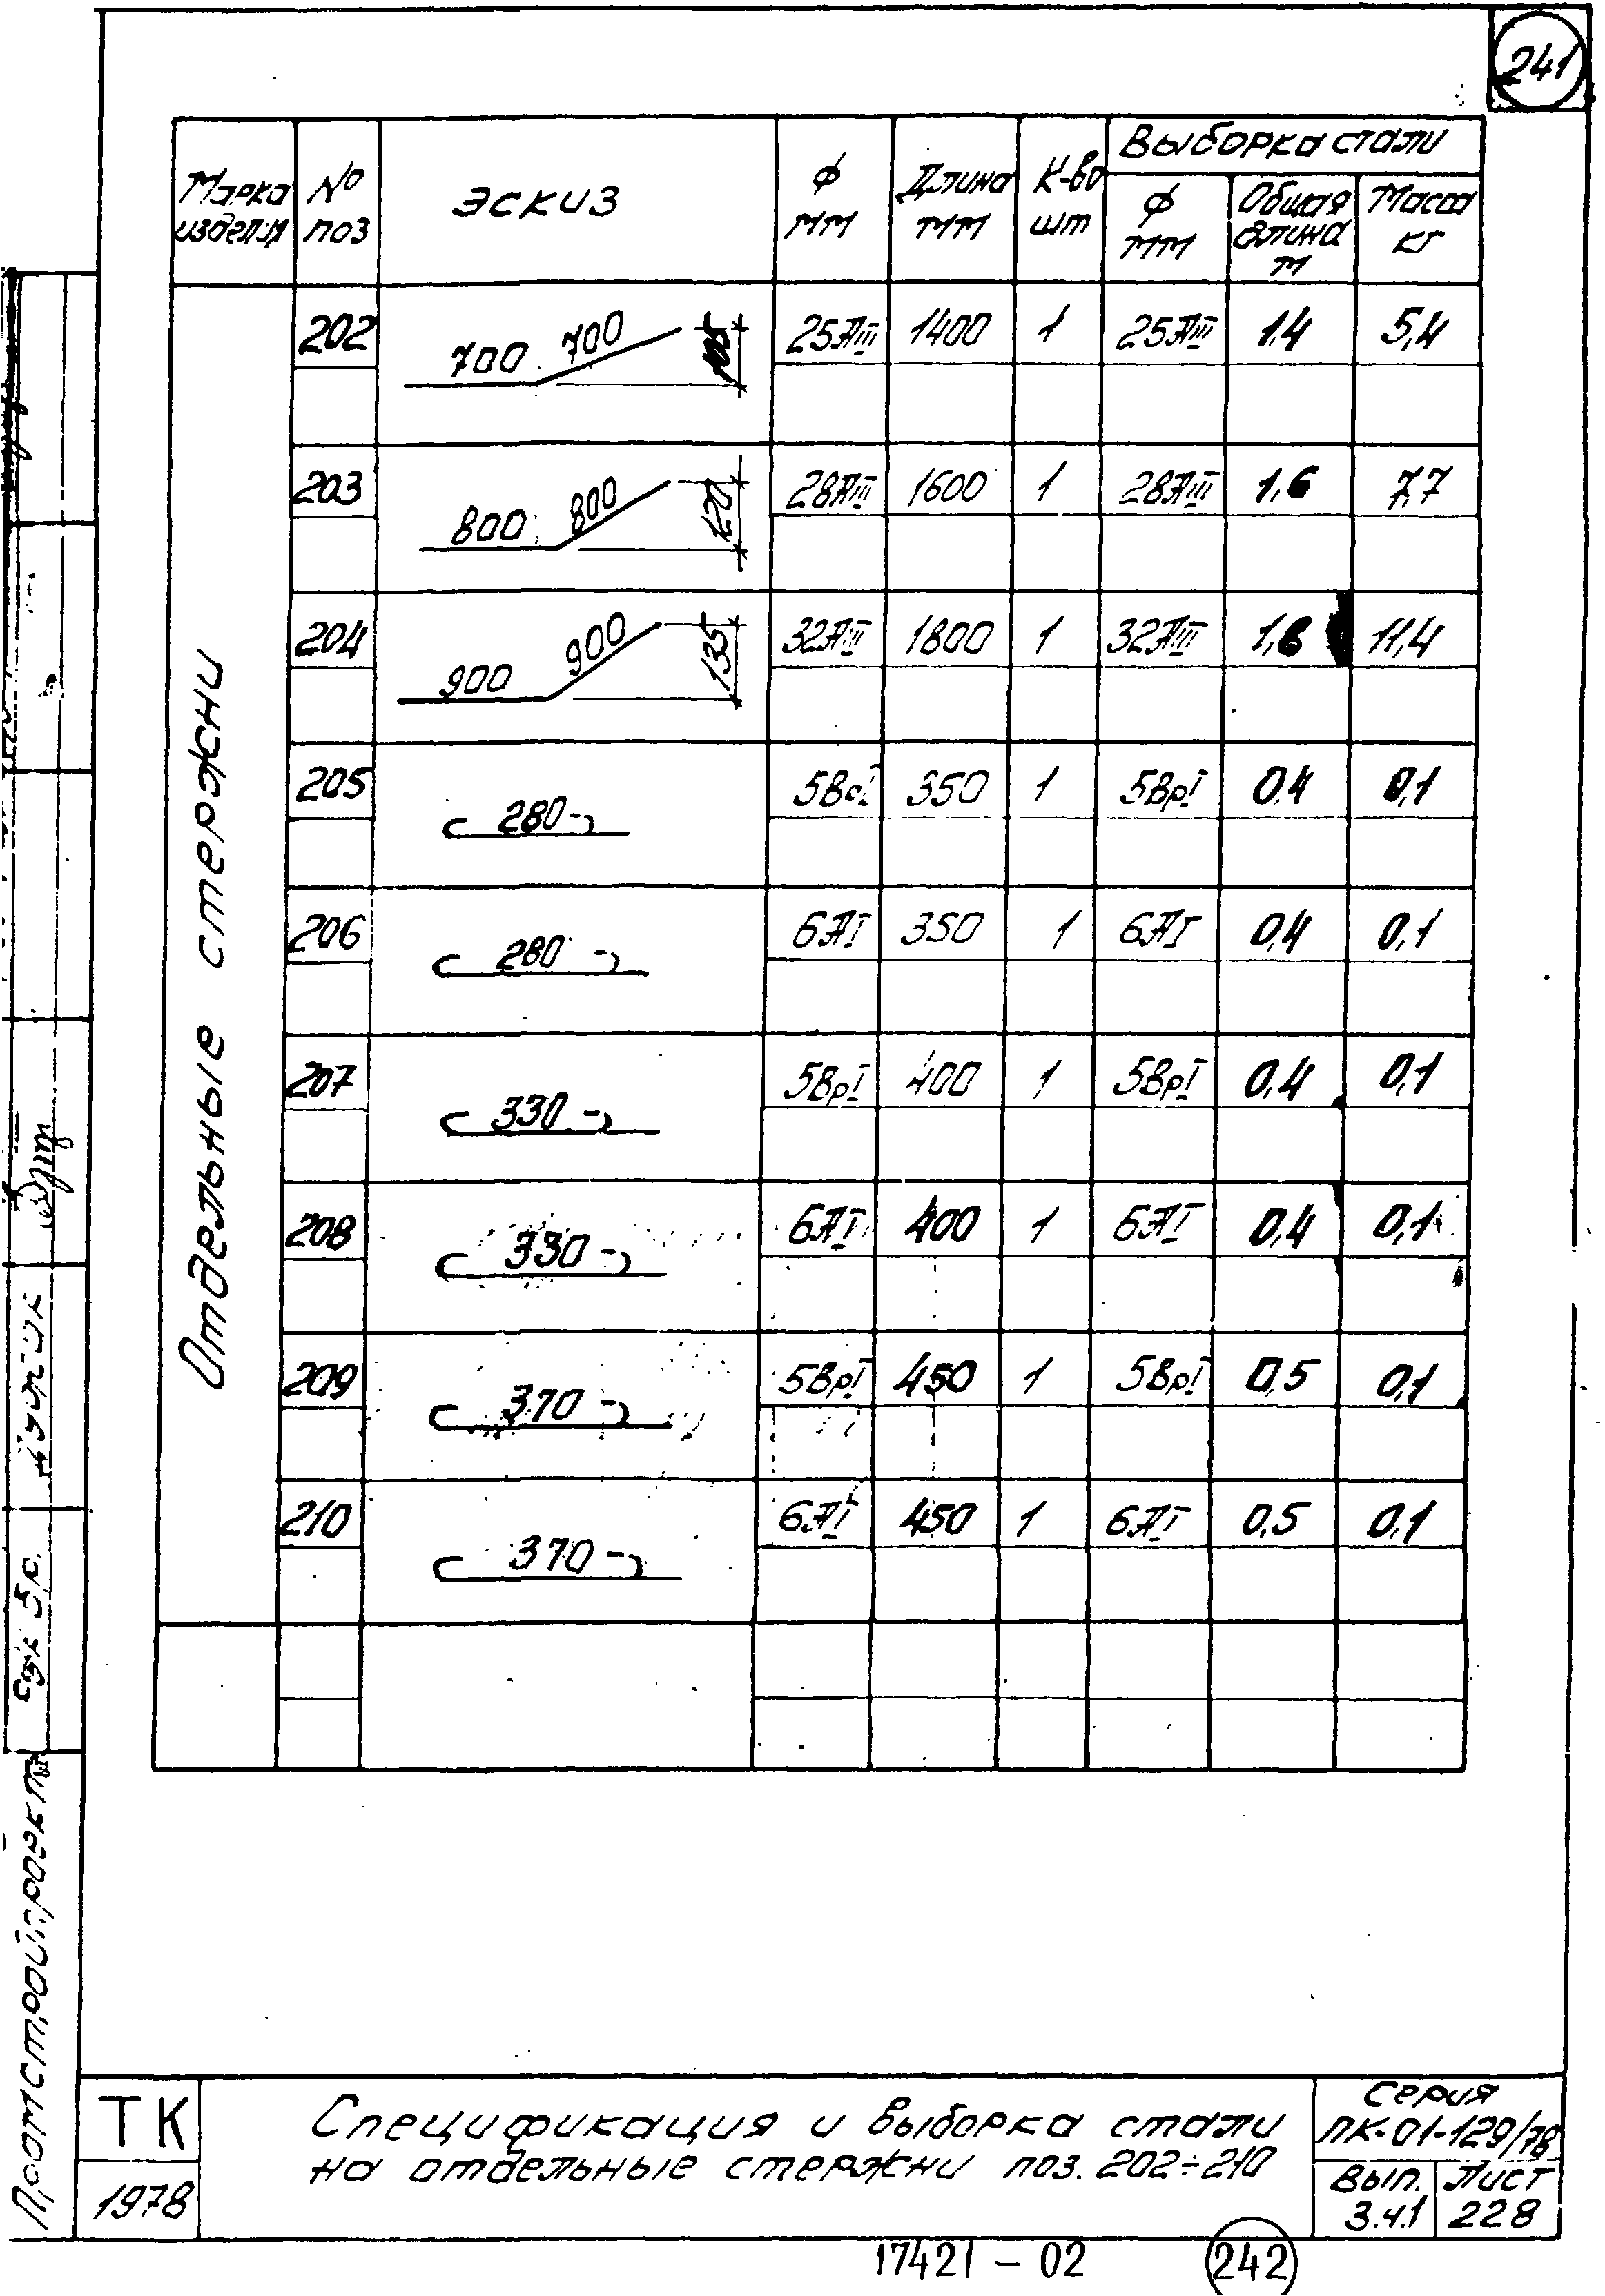 241
Марка изделия
№ поз
эскиз
Ф мм
Длина мм
К-во шт
Выборка стали
Ф мм
Общая длина м
Масса кг
Отдельные стержни
202 700 700 105 25АIII 1400 1 25АIII 1,4 5,4
203 800 800 120 28АIII 1600 1 28АIII 1,6 7,7
204 900 900 135 32АIII 1800 1 32АIII 1,6 11,4
205 280 5ВрI 350 1 5ВрI 0,4 0,1
206 280 6АI 350 1 6АI 0,4 0,1
207 330 5ВрI 400 1 5ВрI 0,4 0,1
208 330 6АI 400 1 6АI 0,4 0,1
209 370 5ВрI 450 1 5ВрI 0,5 0,1
210 370 6АI 450 1 6АI 0,5 0,1
Промстройпроект
ТК
1978
Спецификация и выборка стали
на отдельные стержни поз. 202÷210
Серия
ПК-01-129/78
Вып.
3.ч.1
Лист
228
17421 - 02
242